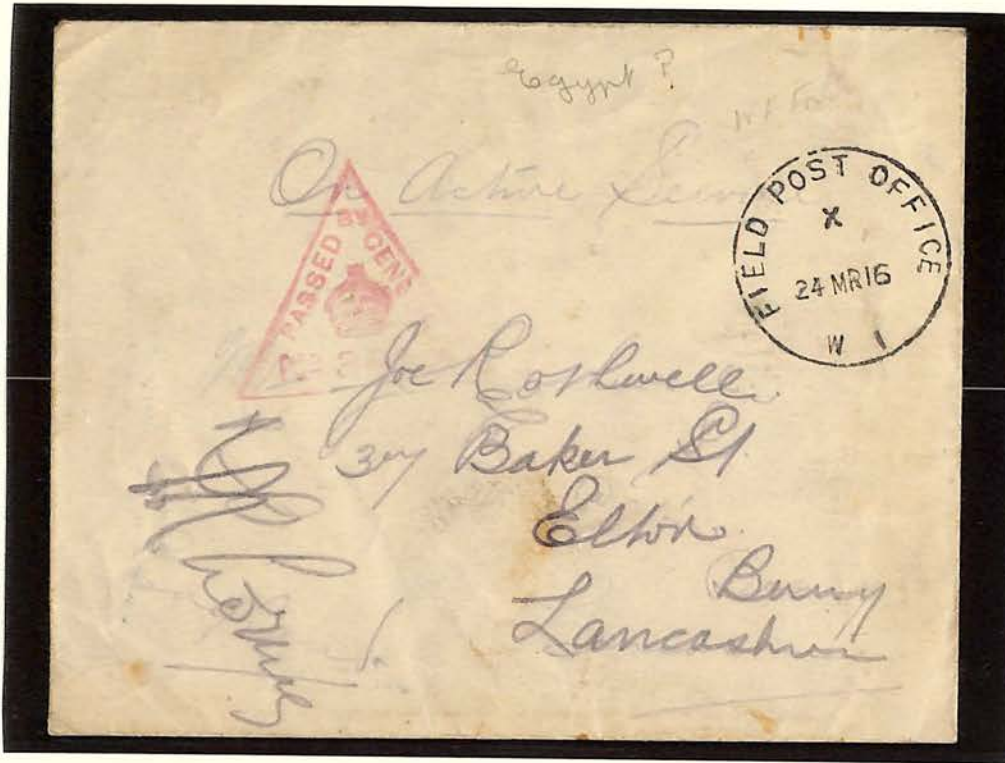 Egypt ?
On Active
FIELD POST OFFICE
X
24 MR16
W 1
PASSED BY CENS
Joe Rothwell
37 Baker St
Elton
Bury
Lancashire